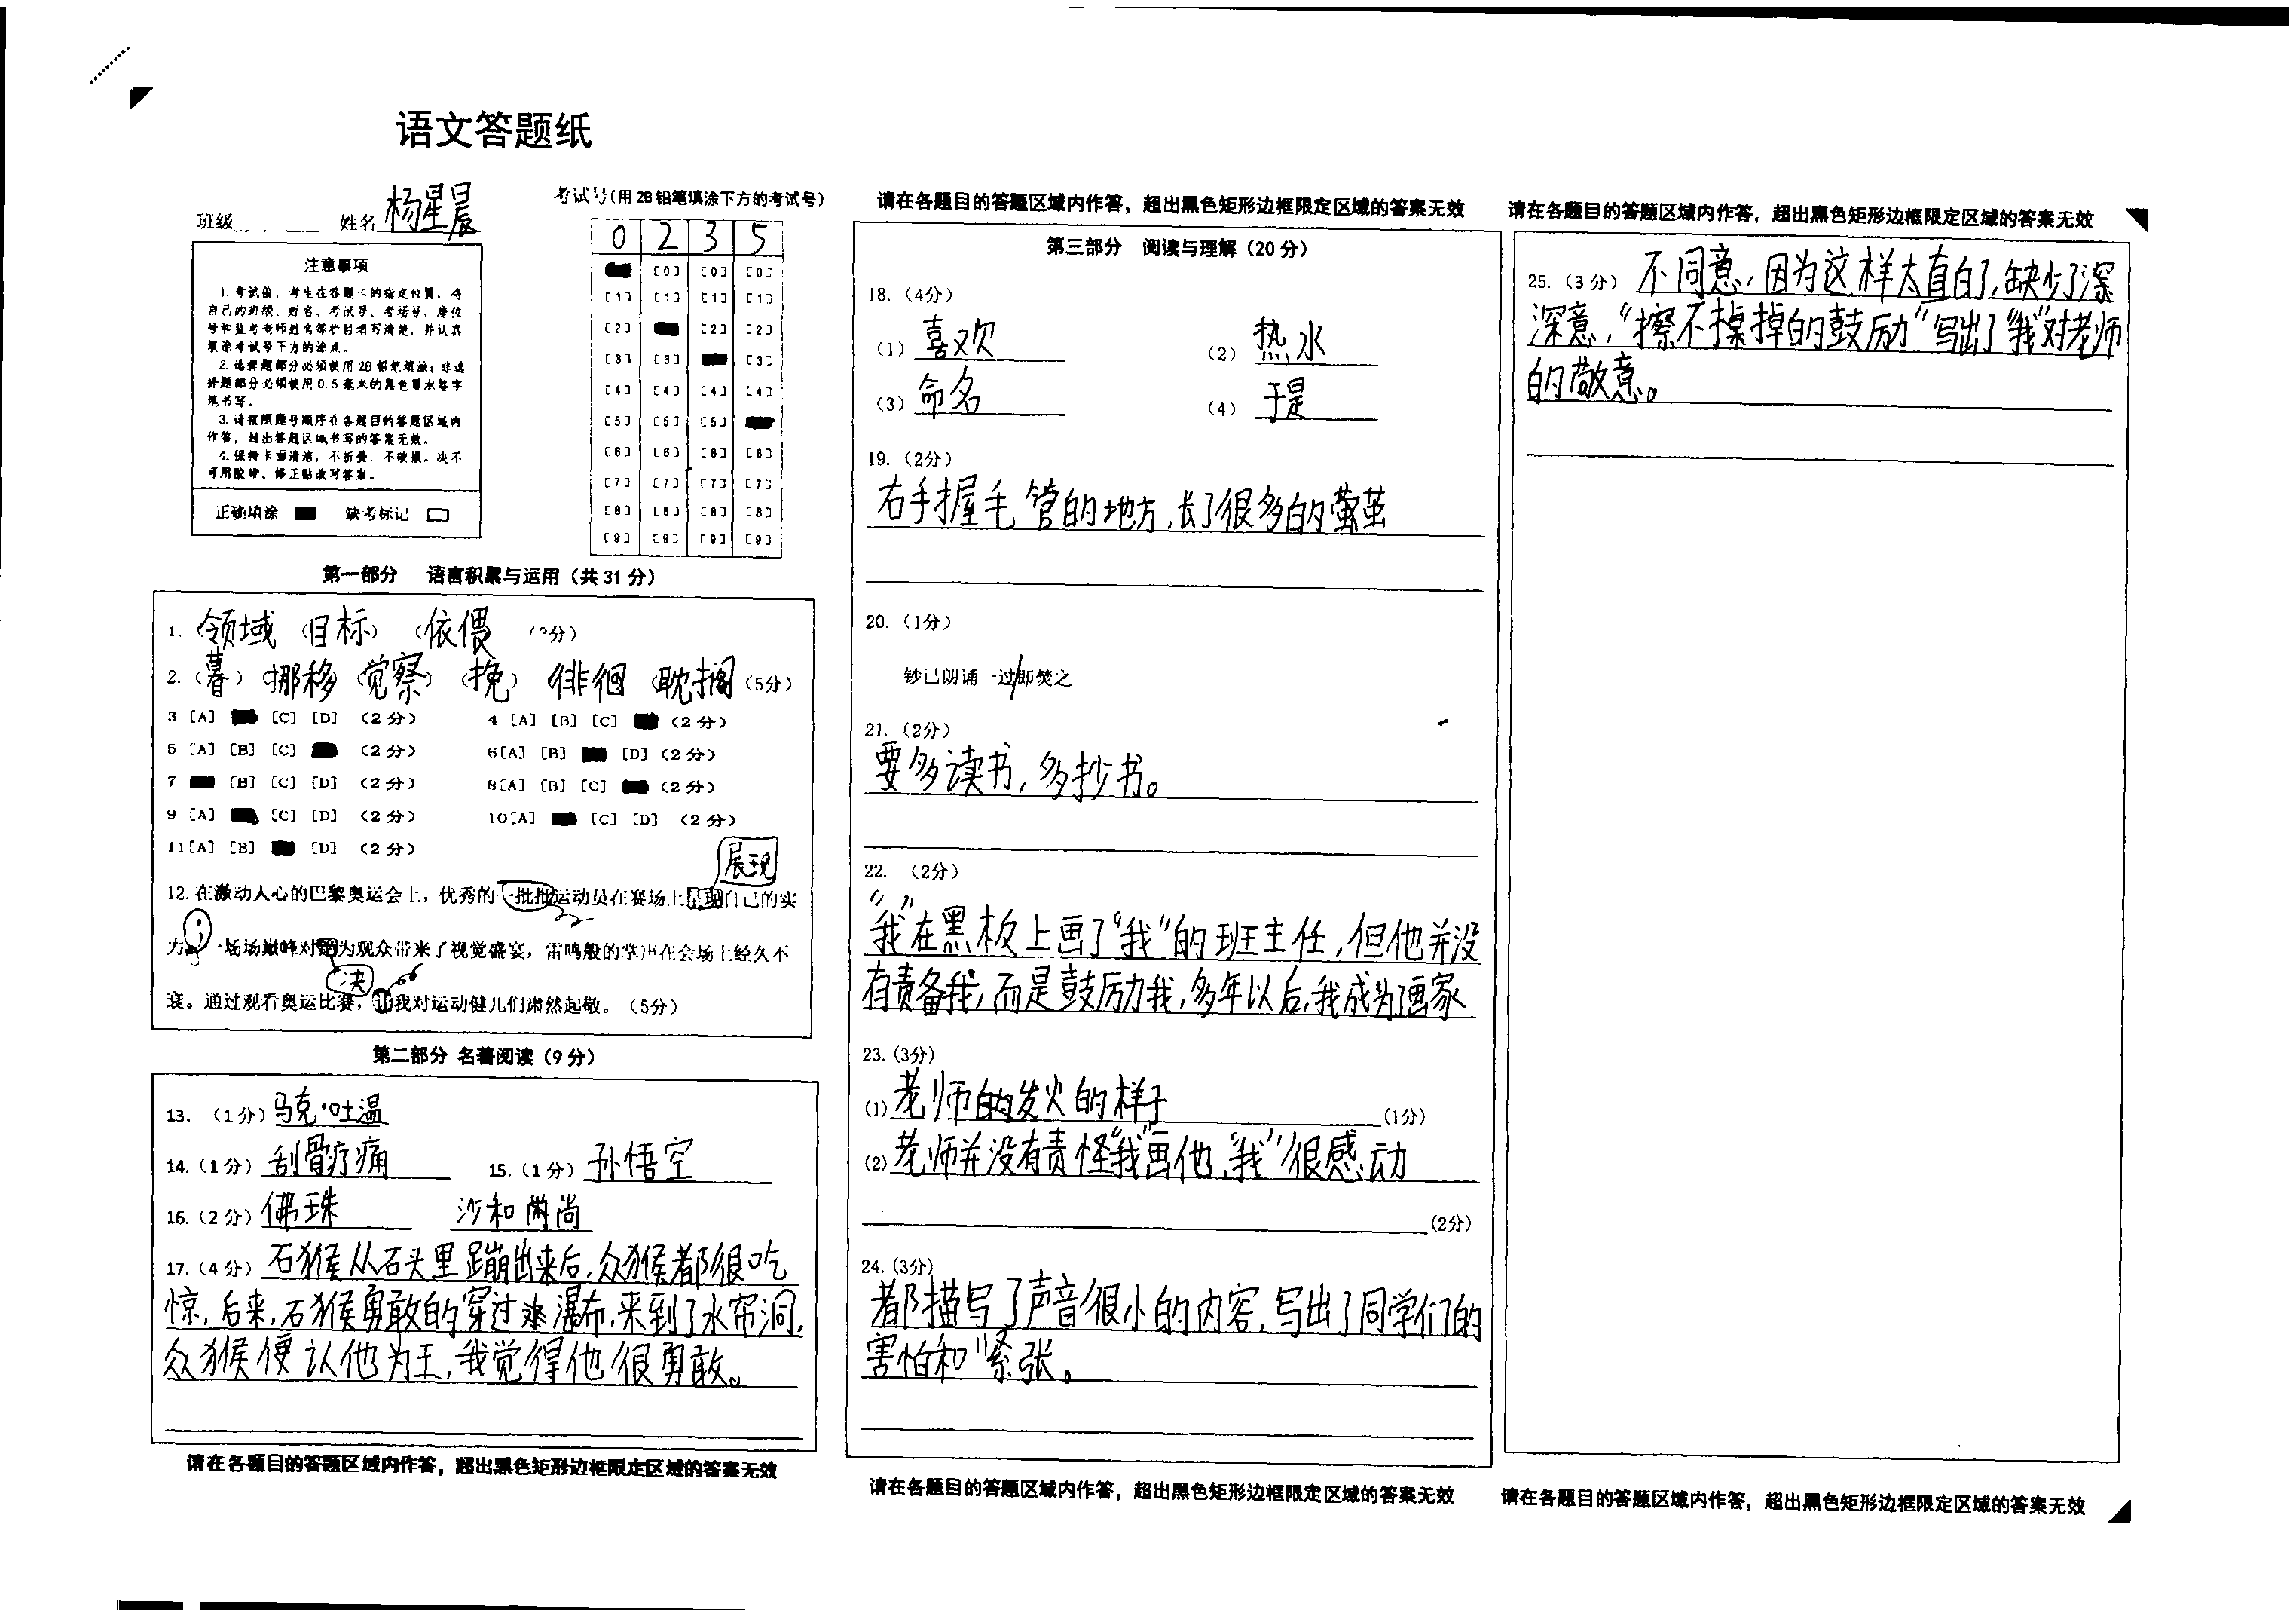 语文答题纸
班级 姓名 杨星晨
考试号(用2B铅笔填涂下方的考试号)
0 2 3 5
[0] [0] [0]
[1] [1] [1] [1]
[2] [2] [2]
[3] [3] [3]
[4] [4] [4] [4]
[5] [5] [5]
[6] [6] [6] [6]
[7] [7] [7] [7]
[8] [8] [8] [8]
[9] [9] [9] [9]
注意事项
1. 考试前,考生在答题卡的指定位置,将
自己的班级、姓名、考试号、考场号、座位
号和监考老师姓名等栏目填写清楚,并认真
填涂考试号下方的涂点。
2. 选择题部分必须使用2B铅笔填涂;非选
择题部分必须使用0.5毫米的黑色墨水签字
笔书写。
3. 请按照题号顺序在各题目的答题区域内
作答,超出答题区域书写的答案无效。
4. 保持卡面清洁,不折叠、不破损。决不
可用胶带、修正贴改写答案。
正确填涂 缺考标记
第一部分 语言积累与运用(共31分)
1. (领域 (目标) (依偎 (3分)
2. (暮) (挪移 (觉察) (挽) 徘徊 (耽搁 (5分)
3 [A] [C] [D] (2分) 4 [A] [B] [C] (2分)
5 [A] [B] [C] (2分) 6[A] [B] [D] (2分)
7 [B] [C] [D] (2分) 8[A] [B] [C] (2分)
9 [A] [C] [D] (2分) 10[A] [C] [D] (2分)
11[A] [B] [D] (2分)
展现
12.在激动人心的巴黎奥运会上,优秀的一批批运动员在赛场上呈现自己的实
力 一场场巅峰对 为观众带来了视觉盛宴,雷鸣般的掌声在会场上经久不
决
衰。通过观看奥运比赛,让我对运动健儿们肃然起敬。(5分)
第二部分 名著阅读(9分)
13. (1分) 马克·吐温
14. (1分) 刮骨疗痛 15. (1分) 孙悟空
16. (2分) 佛珠 沙和尚
17. (4分) 石猴从石头里蹦出来后,众猴都很吃
惊,后来,石猴勇敢的穿过瀑布,来到了水帘洞,
众猴便认他为王,我觉得他很勇敢。
请在各题目的答题区域内作答,超出黑色矩形边框限定区域的答案无效
请在各题目的答题区域内作答,超出黑色矩形边框限定区域的答案无效
第三部分 阅读与理解(20分)
18. (4分)
(1) 喜欢 (2) 热水
(3) 命名 (4) 于是
19. (2分)
右手握毛管的地方,长了很多的茧
20. (1分)
钞已朗诵一过/即焚之
21. (2分)
要多读书,多抄书。
22. (2分)
“我”在黑板上画了“我”的班主任,但他并没
有责备我,而是鼓励我,多年以后,我成为了画家
23. (3分)
(1) 老师的发火的样子 (1分)
(2) 老师并没有责怪“我”画他,“我”很感动
(2分)
24. (3分)
都描写了声音很小的内容,写出了同学们的
害怕和紧张。
请在各题目的答题区域内作答,超出黑色矩形边框限定区域的答案无效
请在各题目的答题区域内作答,超出黑色矩形边框限定区域的答案无效
25. (3分) 不同意,因为这样太直白了,缺少了深
深意,“擦不掉的鼓励”写出了“我”对老师
的敬意。
请在各题目的答题区域内作答,超出黑色矩形边框限定区域的答案无效